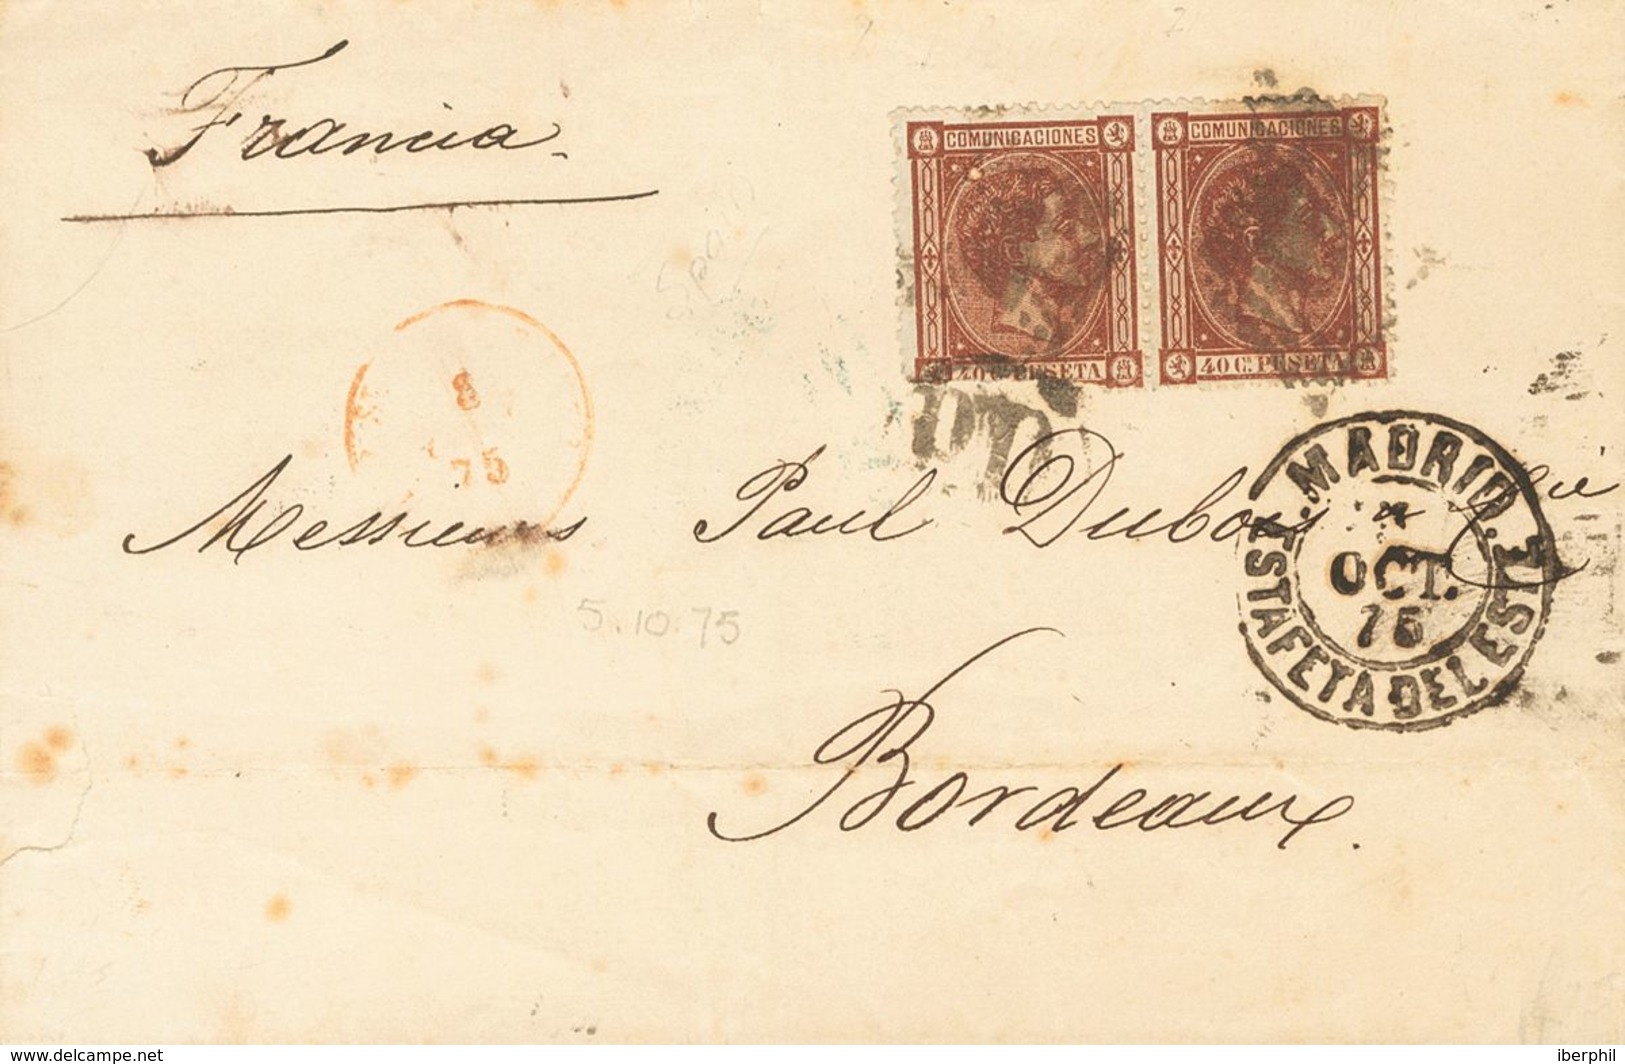 Francia.
COMUNICACIONES
COMUNICACIONES
40 Cs. PESETA
40 Cs. PESETA
Spain
8
75
PD
Messieurs Paul Dubois & Cie
MADRID.
OCT.
75
ESTAFETA DEL ESTE
5.10.75
Bordeaux.
www.delcampe.net
iberphil